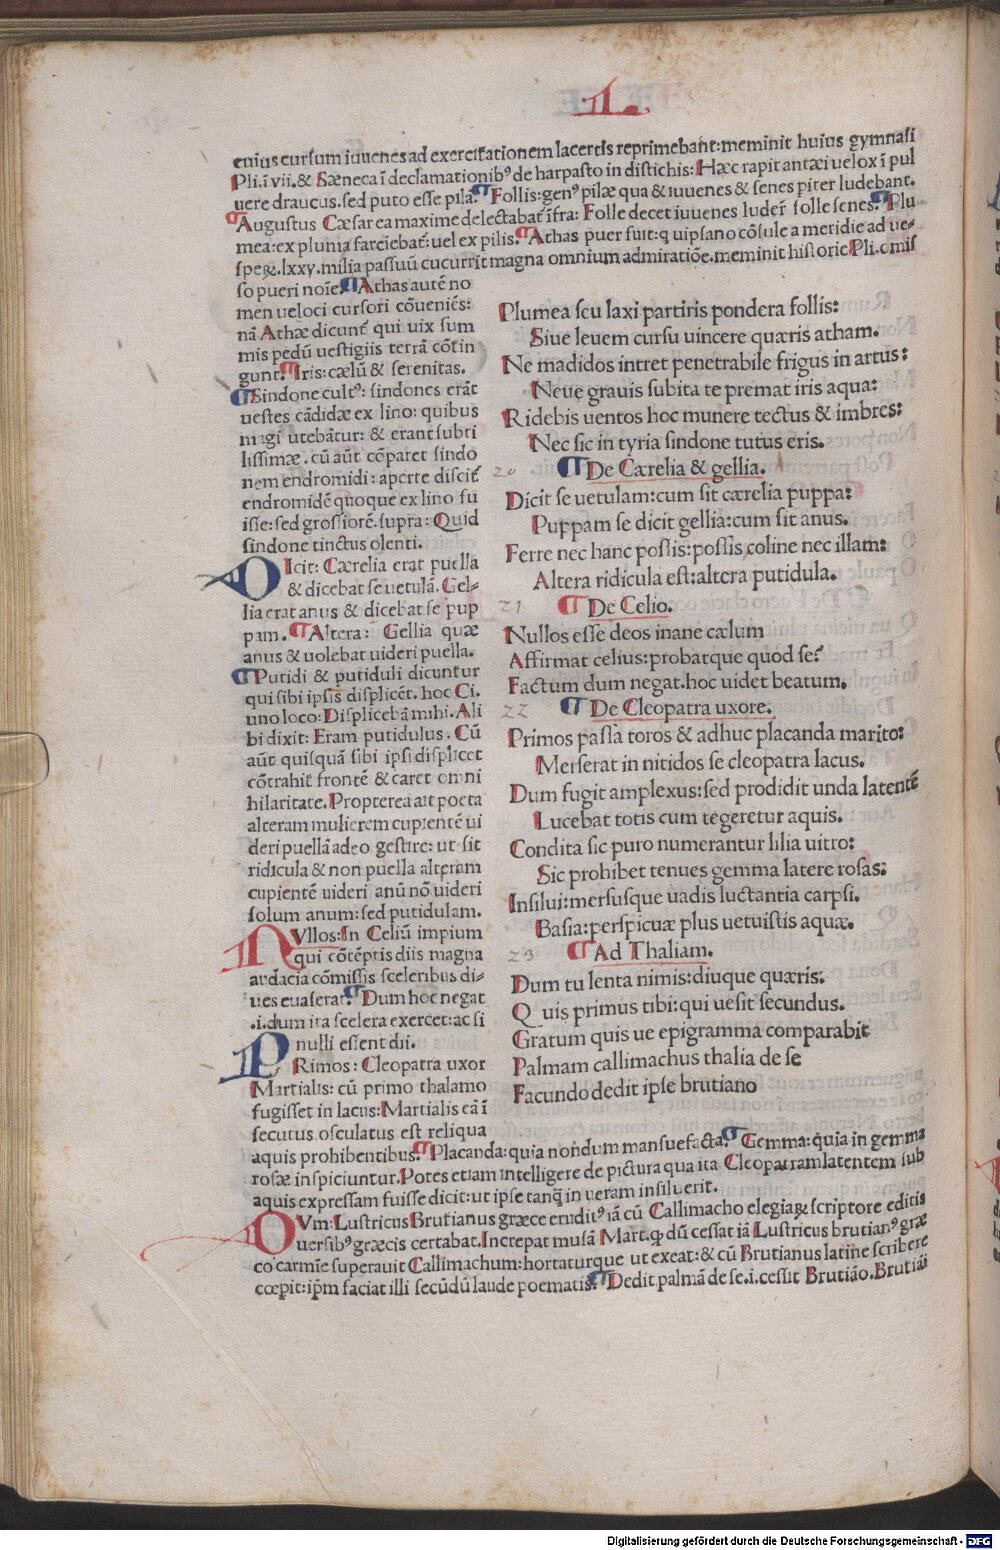 L
cuius cursum iuuenes ad exercitationem lacertis reprimebant: meminit huius gymnasi
Pli. ī vii. & Sæneca ī declamationibꝰ de harpasto in distichis: Hæc rapit antæi uelox ī pul
uere draucus. sed puto esse pilā. ¶ Follis: genꝰ pilæ qua & iuuenes & senes piter ludebant.
¶ Augustus Cæsar ea maxime delectabat̄ īfra: Folle decet iuuenes luder̄ folle senes. ¶ Plu
mea: ex pluma farciebat̄: uel ex pilis. ¶ Athas puer fuit: q uipsano cōsule a meridie ad ue-
speꝝ. lxxv. milia passuū cucurrit magna omnium admiratiōe. meminit historic Pli. omis
so pueri noīe. ¶ Athas autē no
men ueloci cursori cōueniēs:
nā Athæ dicunt̄ qui uix sum
mis pedū uestigiis terrā cōtin
gunt. ¶ Iris: cælū & serenitas.
¶ Sindone cultꝰ: sindones erāt
uestes cādidæ ex lino: quibus
magi utebātur: & erant subti
lissimæ. cū aūt cōparet sindo
nem endromidi: aperte discit̄
endromidē quoque ex lino fu
isse: sed grossiorē. supra: Quid
sindone tinctus olenti.
DIcit: Cærelia erat puella
& dicebat se uetulā. Gel-
lia erat anus & dicebat se pup
pam. ¶ Altera: Gellia quæ
anus & uolebat uideri puella.
¶ Putidi & putiduli dicuntur
qui sibi ipsis displicēt. hoc Ci.
uno loco: Displicebā mihi. Ali
bi dixit: Eram putidulus. Cū
aūt quisquā sibi ipsi displicet
cōtrahit frontē & caret omni
hilaritate. Propterea ait poeta
alteram mulierem cupientē ui
deri puellā adeo gestire: ut sit
ridicula & non puella alteram
cupientē uideri anū nō uideri
solum anum: sed putidulam.
NVllos: In Celiū impium
qui cōtēptis diis magna
audacia cōmissis sceleribus di-
ues euaserat. ¶ Dum hoc negat
.i. dum ita scelera exercet: ac si
nulli essent dii.
PRimos: Cleopatra uxor
Martialis: cū primo thalamo
fugisset in lacus: Martialis eā ī
secutus osculatus est reliqua
Plumea seu laxi partiris pondera follis:
Siue leuem cursu uincere quæris atham.
Ne madidos intret penetrabile frigus in artus:
Neue grauis subita te premat iris aqua:
Ridebis uentos hoc munere tectus & imbres:
Nec sic in tyria sindone tutus eris.
20 ¶ De Cærelia & gellia.
Dicit se uetulam: cum sit cærelia puppa:
Puppam se dicit gellia: cum sit anus.
Ferre nec hanc possis: possis coline nec illam:
Altera ridicula est: altera putidula.
21 ¶ De Celio.
Nullos esse deos inane cælum
Affirmat celius: probatque quod se:
Factum dum negat. hoc uidet beatum.
22 ¶ De Cleopatra uxore.
Primos passa toros & adhuc placanda marito:
Merserat in nitidos se cleopatra lacus.
Dum fugit amplexus: sed prodidit unda latentē
Lucebat totis cum tegeretur aquis.
Condita sic puro numerantur lilia uitro:
Sic prohibet tenues gemma latere rosas:
Insilui: mersusque uadis luctantia carpsi.
Basia: perspicuæ plus uetuistis aquæ.
23 ¶ Ad Thaliam.
Dum tu lenta nimis: diuque quæris:
Quis primus tibi: qui uesit secundus.
Gratum quis ue epigramma comparabit
Palmam callimachus thalia de se
Facundo dedit ipse brutiano
aquis prohibentibus. ¶ Placanda: quia nondum mansuefacta. ¶ Gemma: quia in gemma
rosæ inspiciuntur. Potes etiam intelligere de pictura qua ita Cleopatram latentem sub
aquis expressam fuisse dicit: ut ipse tanq̄ in ueram insiluerit.
DVm: Lustricus Brutianus græce eruditꝰ iā cū Callimacho elegiaꝝ scriptore editis
uersibꝰ græcis certabat. Increpat musā Mart. q̄ dū cessat iā Lustricus brutianꝰ græ
co carmīe superauit Callimachum: hortaturque ut exeat: & cū Brutianus latine scribere
cœpit: ip̄m faciat illi secūdū laude poematis. ¶ Dedit palmā de se. i. cessit Brutiāo. Brutiāi
Digitalisierung gefördert durch die Deutsche Forschungsgemeinschaft - DFG